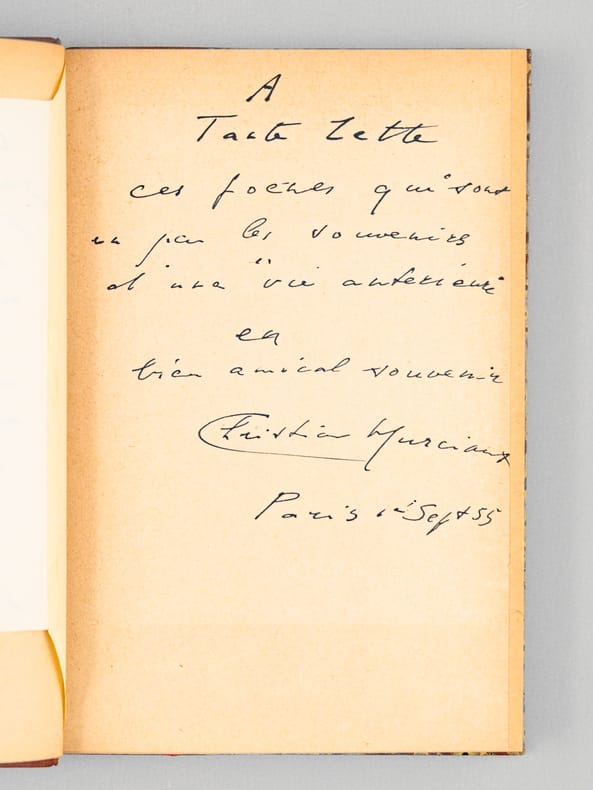 A
Tante Zette
ces poèmes qui sont
un peu les souvenirs
d'une "vie antérieure
en
bien amical souvenir
Christian Murciaux
Paris Sept 55